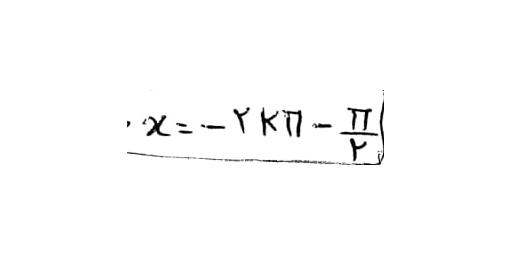 x = -۲kπ - π/۲